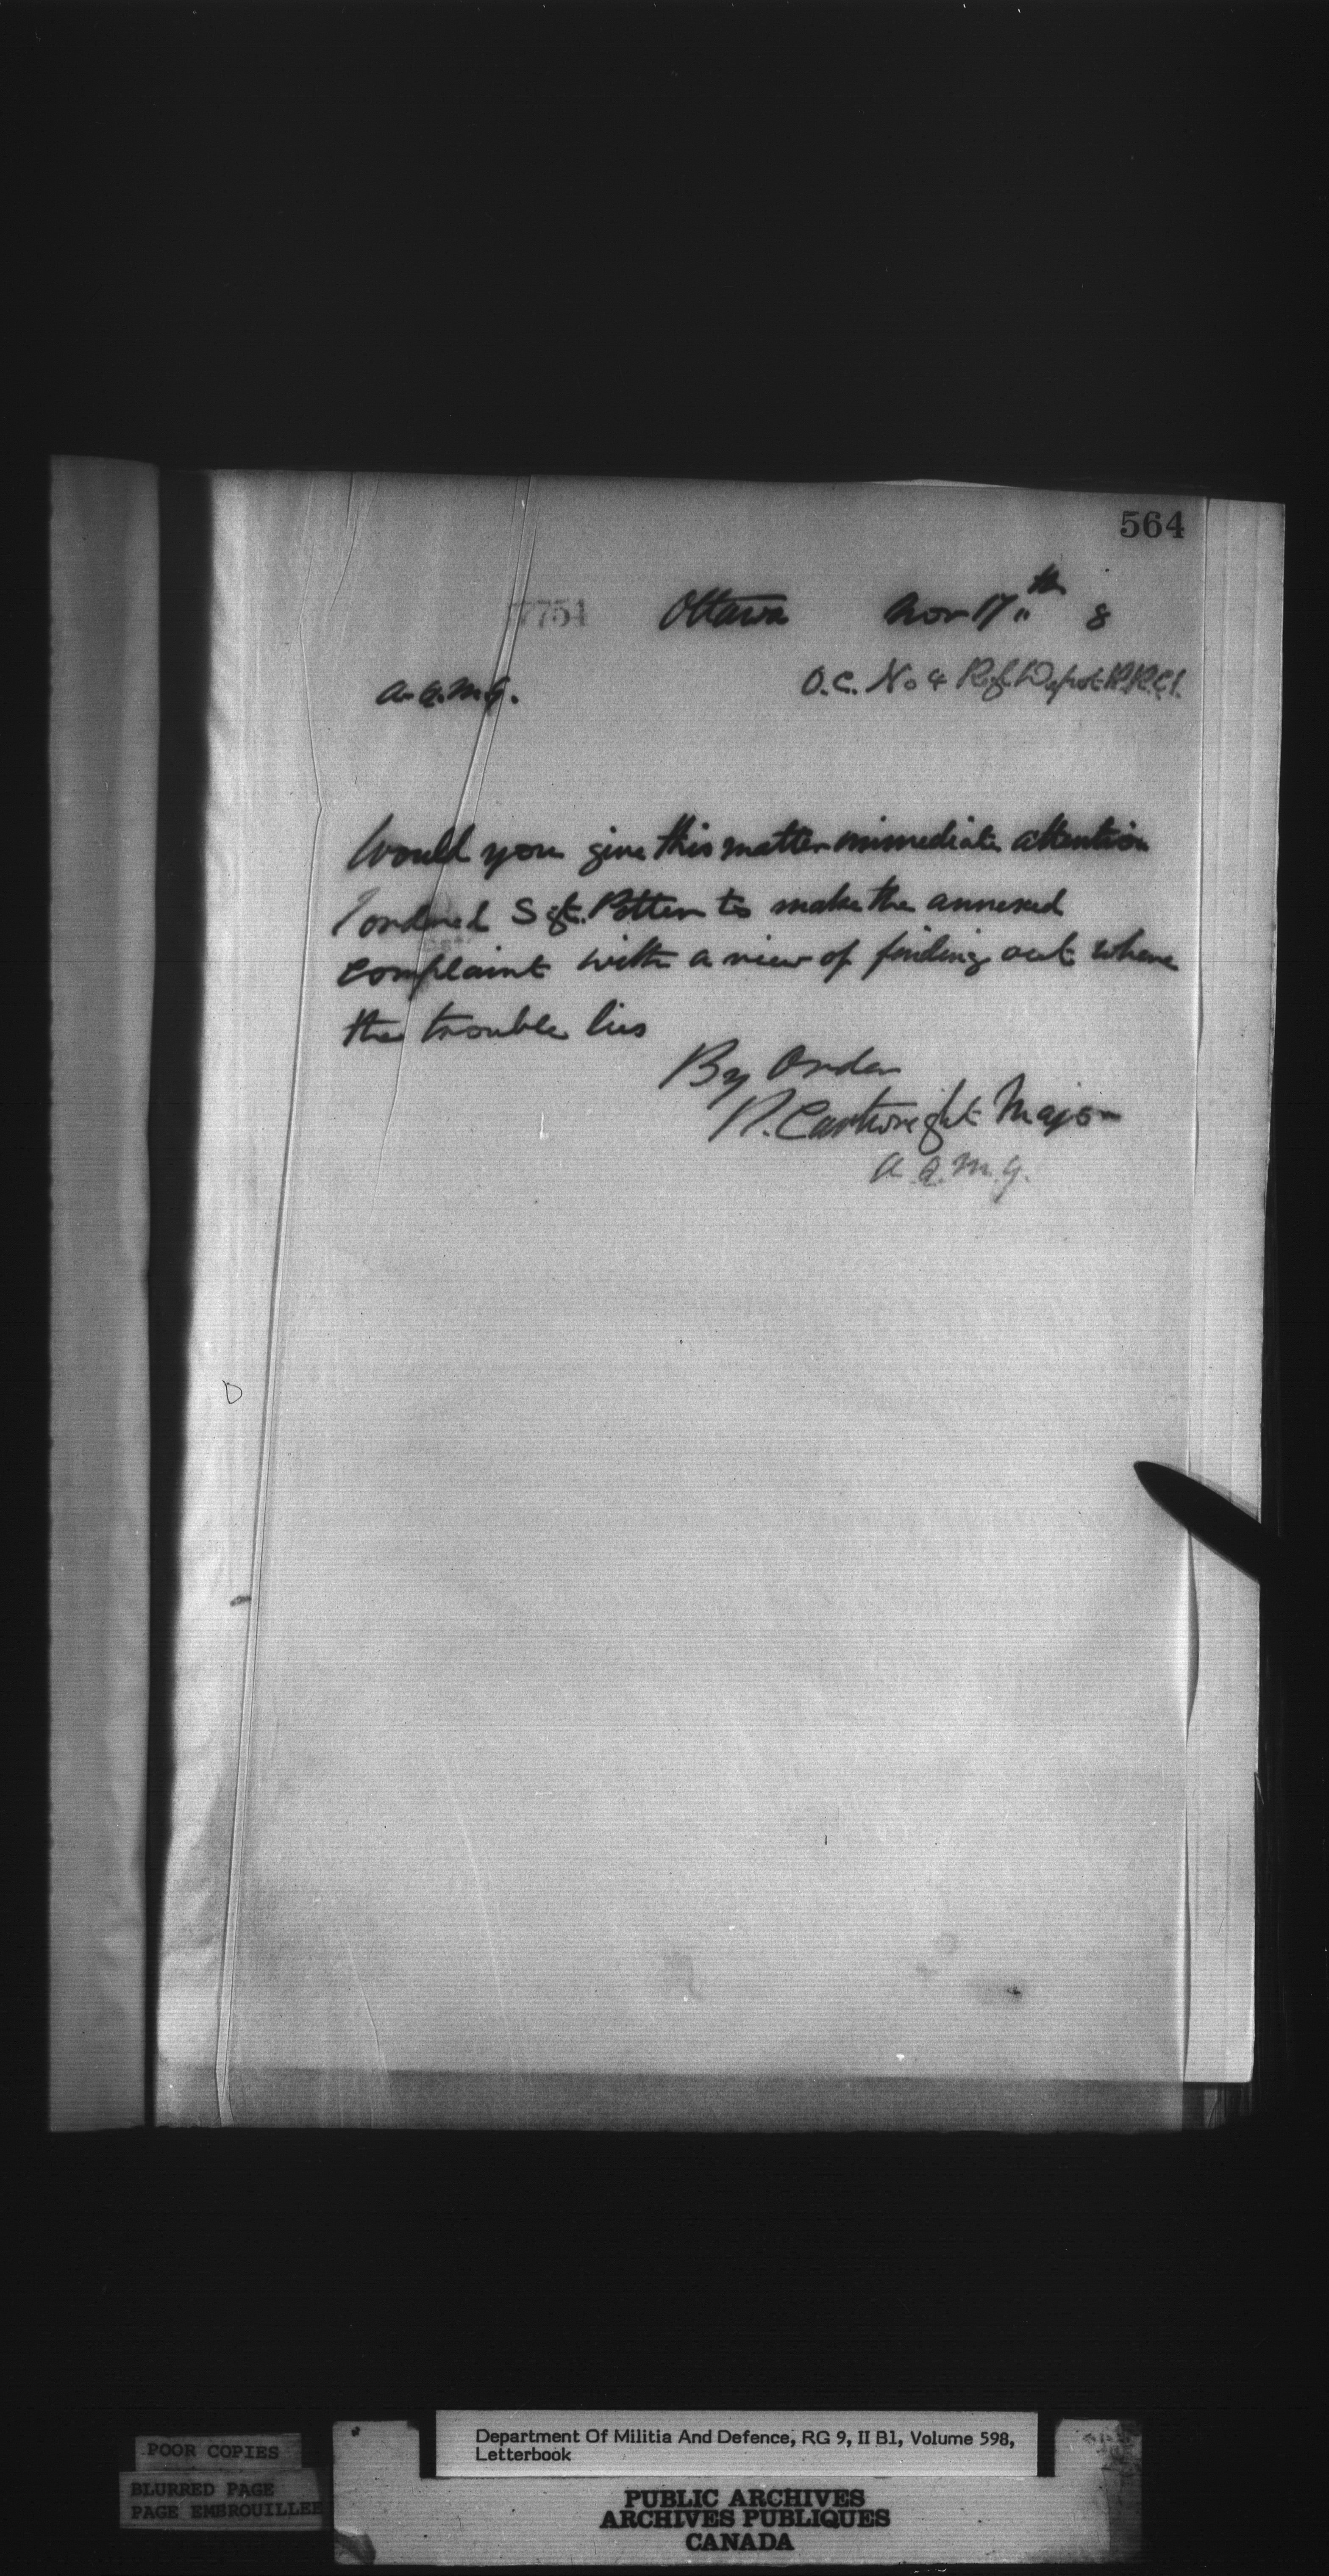 564
7751 Ottawa Nov 17th 8
A.Q.M.G. O.C. No 4 Regl Depot R.R.C.I.
Would you give this matter immediate attention
I ordered Sgt. Potter to make the annexed
complaint with a view of finding out where
the trouble lies
By Order
R. Cartwright Major
A.Q.M.G.
POOR COPIES
BLURRED PAGE
PAGE EMBROUILLEE
Department Of Militia And Defence, RG 9, II B1, Volume 598,
Letterbook
PUBLIC ARCHIVES
ARCHIVES PUBLIQUES
CANADA